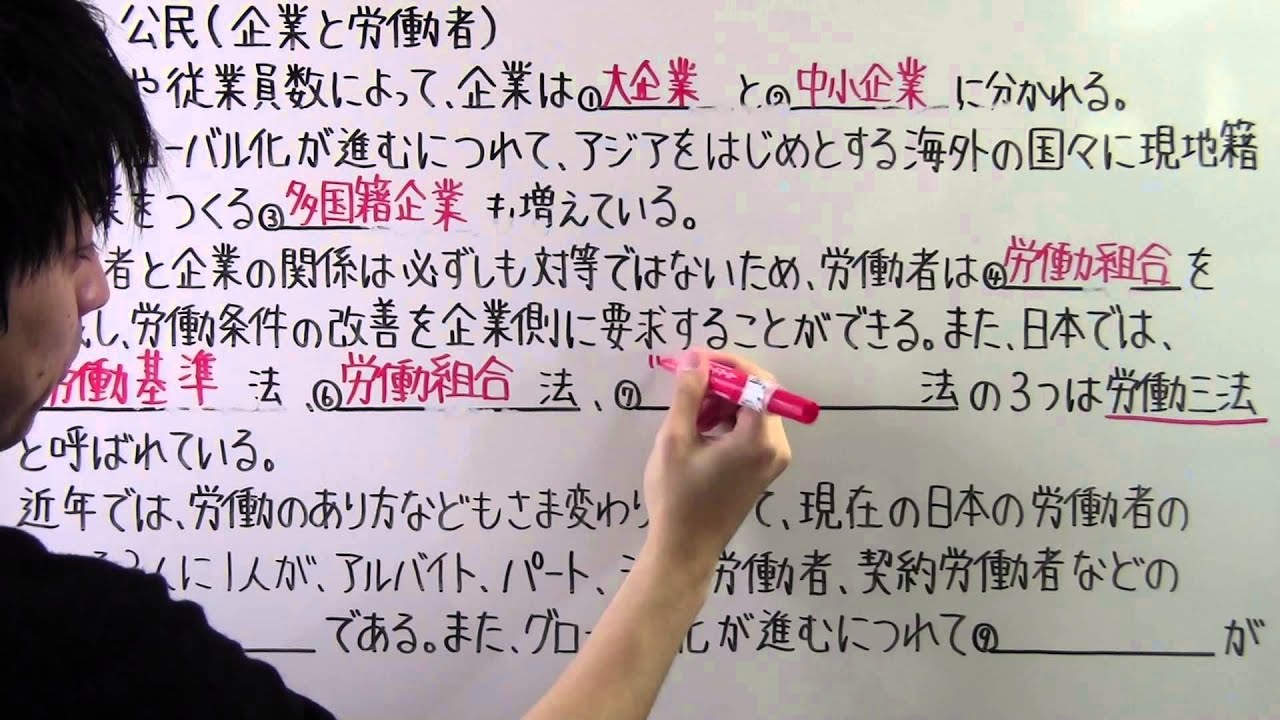 公民(企業と労働者)
や従業員数によって、企業は①大企業 と②中小企業 に分かれる。
ローバル化が進むにつれて、アジアをはじめとする海外の国々に現地籍
業をつくる③多国籍企業 も増えている。
者と企業の関係は必ずしも対等ではないため、労働者は④労働力組合 を
し、労働条件の改善を企業側に要求することができる。また、日本では、
労働基準 法、⑥労働組合 法、⑦ 法の3つは労働三法
と呼ばれている。
近年では、労働のあり方などもさま変わり て、現在の日本の労働者の
3人に1人が、アルバイト、パート、 労働者、契約労働者などの
である。また、グロー 化が進むにつれて⑨ が